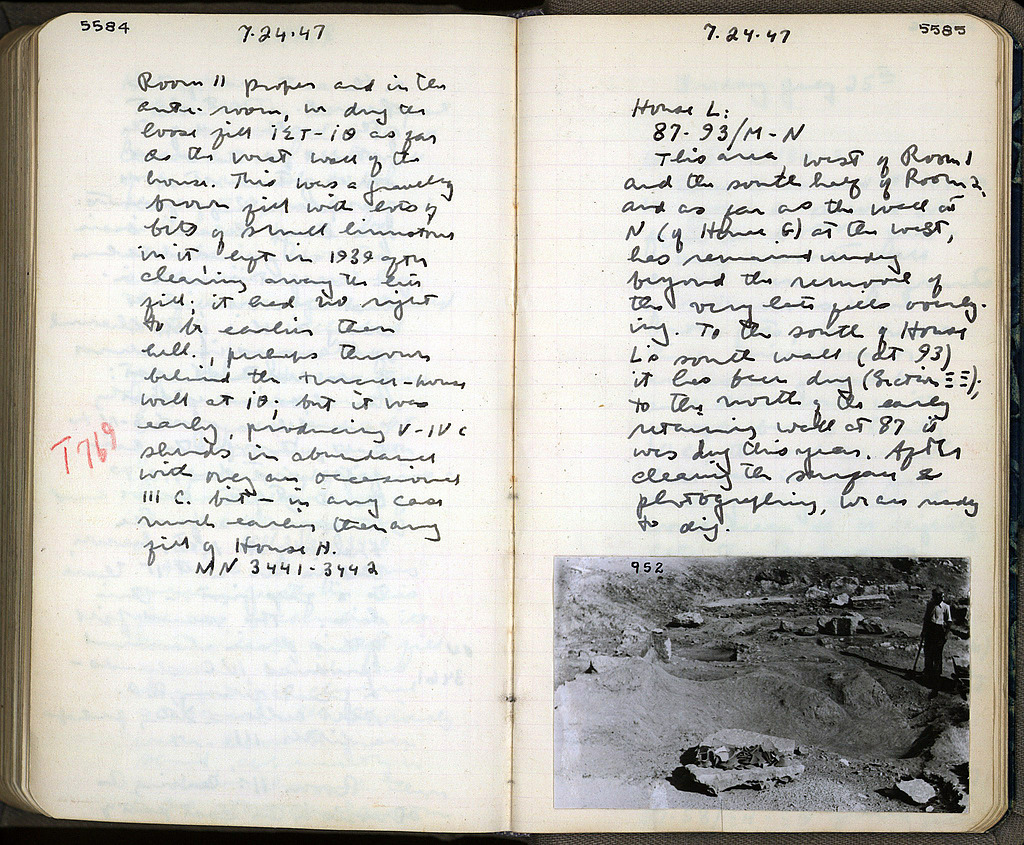 5584
7·24·47
Room 11 proper and in the
ante-room, we dug the
loose fill as far
as the west wall of the
house. This was a gravelly
brown fill with lots of
bits of small limestone
in it left in 1939 after
clearing away the late
fill; it had no right
to be earlier than
hell., perhaps thrown
behind the terrace-house
wall at 10; but it was
early, producing V-IV c
sherds in abundance
with only an occasional
III C. bit - in any case
much earlier than any
fill of House N.
NN 3441-3442
T769
5585
7·24·47
House L:
87-93/M-N
This area, west of Room 1
and the south half of Room 2,
and as far as the wall at
N (of House G) at the west,
has remained undug
beyond the removal of
the very late fills overly-
ing. To the south of House
L's south wall (at 93)
it has been dug (Section ΞΞ);
to the north of the early
retaining wall at 87 it
was dug this year. After
cleaning the surface &
photographing, we are ready
to dig.
952